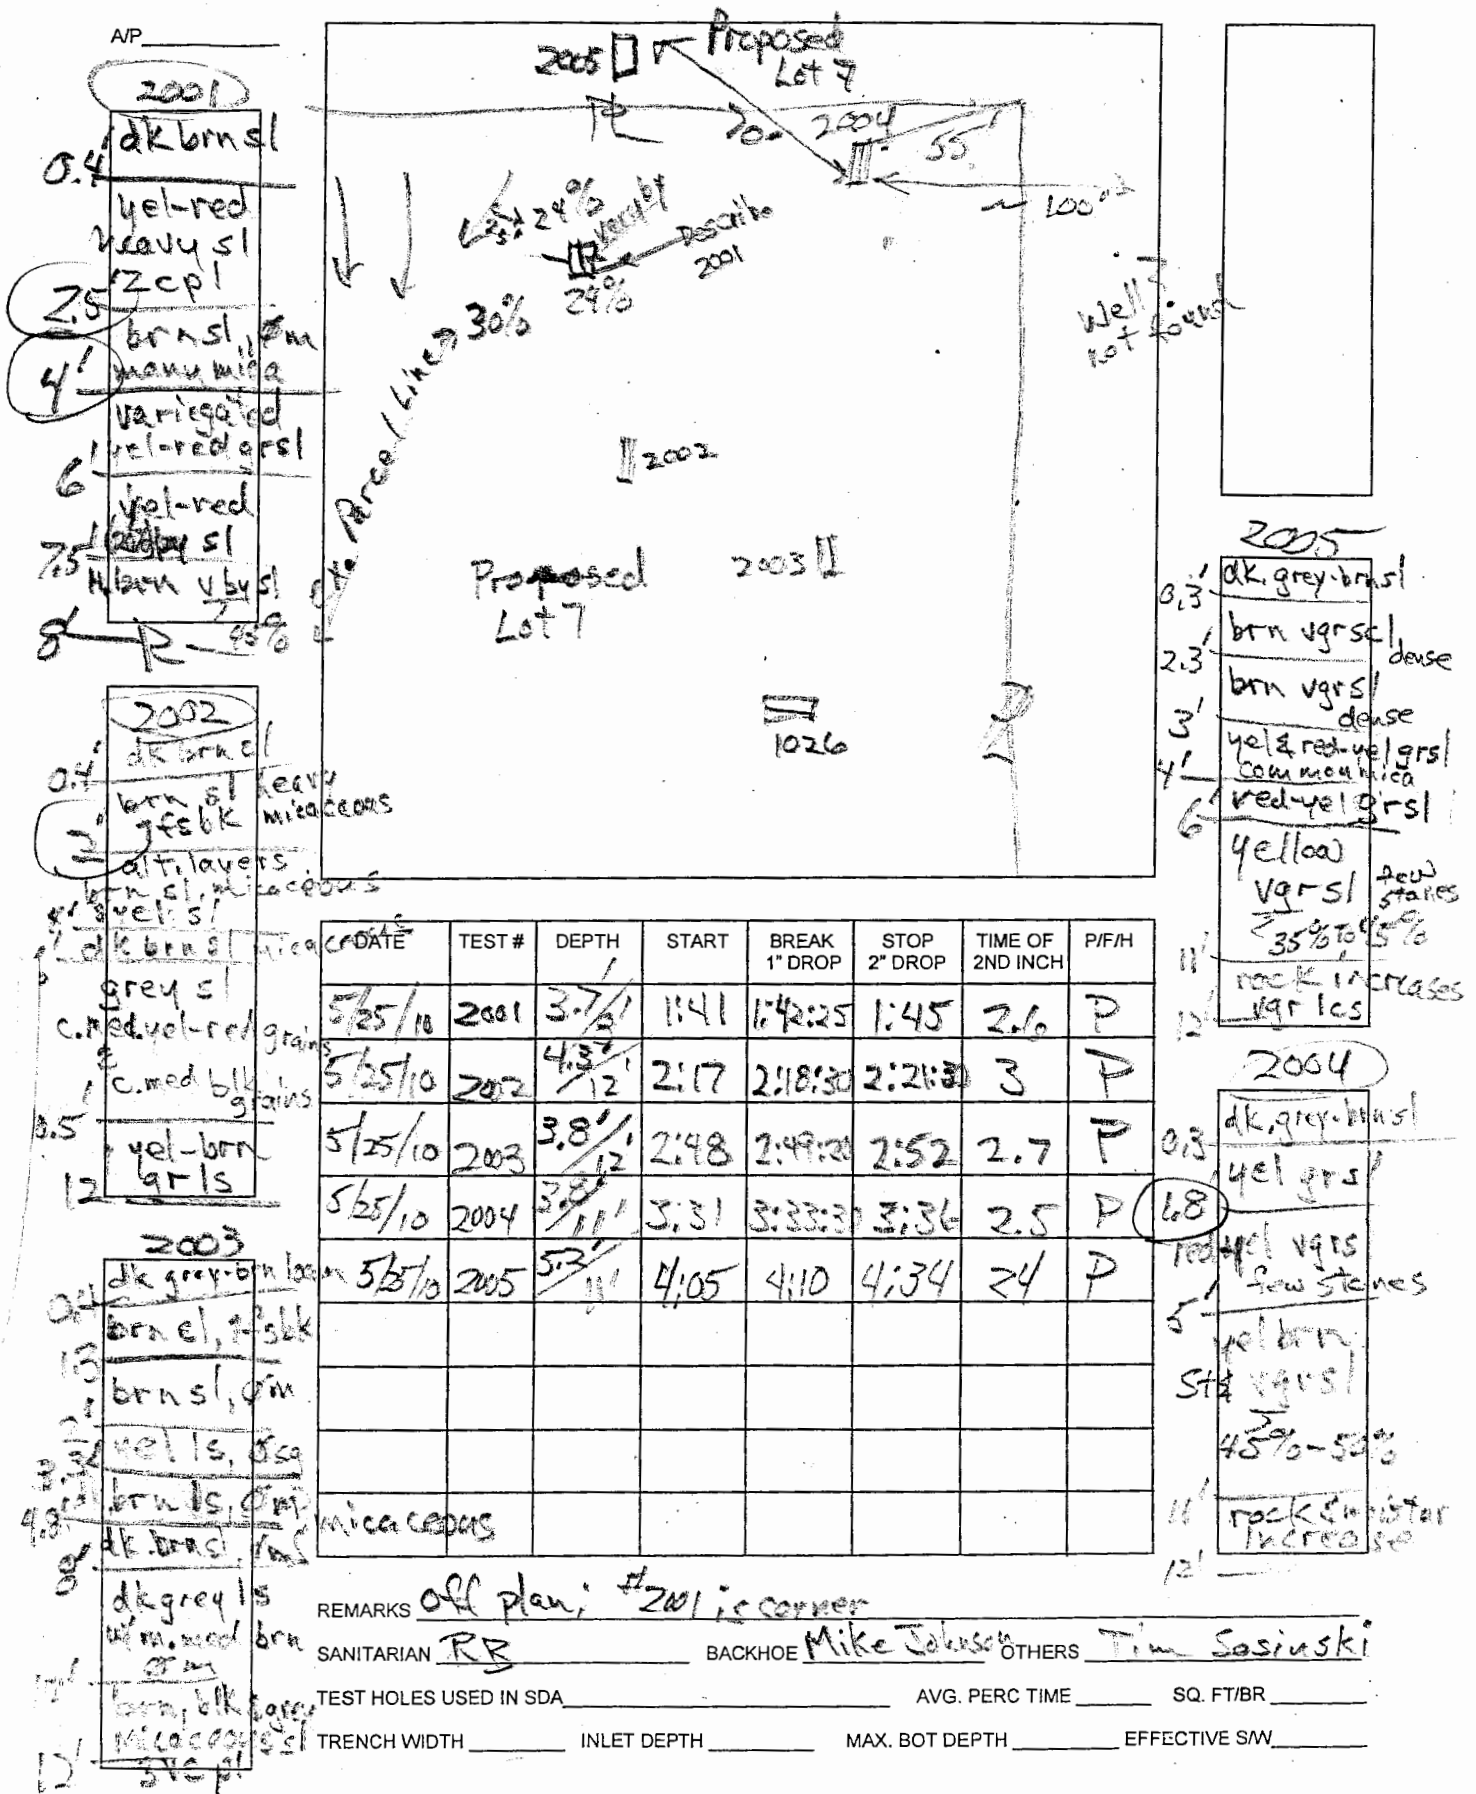 A/P
2001
dk brn sl
0.4'
yel-red
heavy sl
2cpl
2.5
brn sl, øm
many mica
4'
variegated
yel-red grsl
6'
yel-red
sl
7.5'
brn vbysl
8' R 45%
2002
dk brn sl
0.4'
brn sl heavy
gfsbk micaceous
2'
alt. layers
brn sl, micaceous
yel sl
dk brn sl micaceous
grey sl
c.med.yel-red grains
&
c.med blk
grains
yel-brn
grls
12
2003
dk grey-brn loam
0.4'
brn sl, 2fsbk
1.3
brn sl, øm
2'
yel ls, øsg
3.3'
brn ls, øm micaceous
4.8'
dk brn sl, øm
8'
dk grey ls
w/ m.med brn
øm
brn, blk & grey
micaceous sl
12'
2005
Proposed
Lot 7
20'
2004
55'
~ 100'
24%
Verify
Describe
2001
24%
30%
Parcel Line
Well?
not found
2002
2003
Proposed
Lot 7
1026
2005
dk. grey-brn sl
0.3'
brn vgrscl
dense
2.3'
brn vgrsl
dense
3'
yel & red-yel grsl
common mica
4'
red-yel grsl
6'
yellow
vgrsl few
stones
35% to 45%
11'
rock increases
vgr lcs
12'
2004
dk. grey-brn sl
0.3
yel grsl
1.8
red-yel vgrs
few stones
5'
yel brn
st & vgrsl
45%-50%
11'
rock & mottar
increase
12'
DATE TEST # DEPTH START BREAK 1" DROP STOP 2" DROP TIME OF 2ND INCH P/F/H
5/25/10 2001 3.7'/ 1:41 1:42:25 1:45 2.6 P
5/25/10 2002 4.3'/12' 2:17 2:18:30 2:21:30 3 P
5/25/10 2003 3.8'/12' 2:48 2:49:20 2:52 2.7 P
5/25/10 2004 3.8'/11' 3:31 3:33:30 3:36 2.5 P
5/25/10 2005 5.2'/11' 4:05 4:10 4:34 24 P
REMARKS Off plan; #2001 is corner
SANITARIAN RB BACKHOE Mike Johnson OTHERS Tim Sosinski
TEST HOLES USED IN SDA AVG. PERC TIME SQ. FT/BR
TRENCH WIDTH INLET DEPTH MAX. BOT DEPTH EFFECTIVE S/W